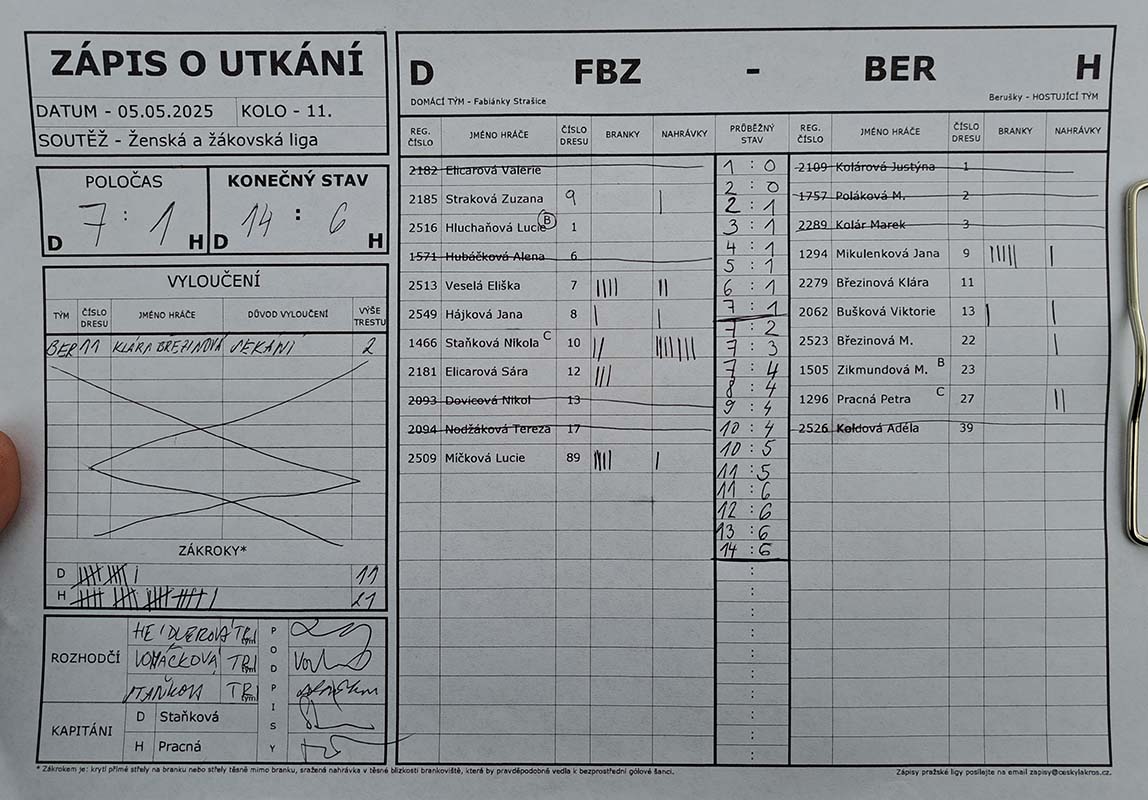 ZÁPIS O UTKÁNÍ
DATUM - 05.05.2025 KOLO - 11.
SOUTĚŽ - Ženská a žákovská liga
POLOČAS KONEČNÝ STAV
7 : 1 14 : 6
D H D H
VYLOUČENÍ
TÝM ČÍSLO DRESU JMÉNO HRÁČE DŮVOD VYLOUČENÍ VÝŠE TRESTU
BER 11 KLÁRA BŘEZINOVÁ SEKÁNÍ 2
ZÁKROKY*
D 11
H 21
ROZHODČÍ
HEIDLEROVÁ TRI
VOHÁČKOVÁ TRI
STAŇKOVÁ TRI
tým
tým
tým
PODPISY
KAPITÁNI
D Staňková
H Pracná
D FBZ - BER H
DOMÁCÍ TÝM - Fabiánky Strašice Berušky - HOSTUJÍCÍ TÝM
REG. ČÍSLO JMÉNO HRÁČE ČÍSLO DRESU BRANKY NAHRÁVKY PRŮBĚŽNÝ STAV REG. ČÍSLO JMÉNO HRÁČE ČÍSLO DRESU BRANKY NAHRÁVKY
2182 Elicarová Valerie
2185 Straková Zuzana 9 |
2516 Hluchaňová Lucie B 1
1571 Hubáčková Alena 6
2513 Veselá Eliška 7 |||| ||
2549 Hájková Jana 8 | |
1466 Staňková Nikola C 10 ||
2181 Elicarová Sára 12 |||
2093 Dovicová Nikol 13
2094 Nodžáková Tereza 17
2509 Míčková Lucie 89 |
1 : 0
2 : 0
2 : 1
3 : 1
4 : 1
5 : 1
6 : 1
7 : 1
7 : 2
7 : 3
7 : 4
8 : 4
9 : 4
10 : 4
10 : 5
11 : 5
11 : 6
12 : 6
13 : 6
14 : 6
2109 Kolárová Justýna 1
1757 Poláková M. 2
2289 Kolár Marek 3
1294 Mikulenková Jana 9 |
2279 Březinová Klára 11
2062 Bušková Viktorie 13 | |
2523 Březinová M. 22 |
1505 Zikmundová M. B 23
1296 Pracná Petra C 27 ||
2526 Koldová Adéla 39
* Zákrokem je: krytí přímé střely na branku nebo střely těsně mimo branku, sražená nahrávka v těsné blízkosti brankoviště, která by pravděpodobně vedla k bezprostřední gólové šanci.
Zápisy pražské ligy posílejte na email zapisy@ceskylakros.cz